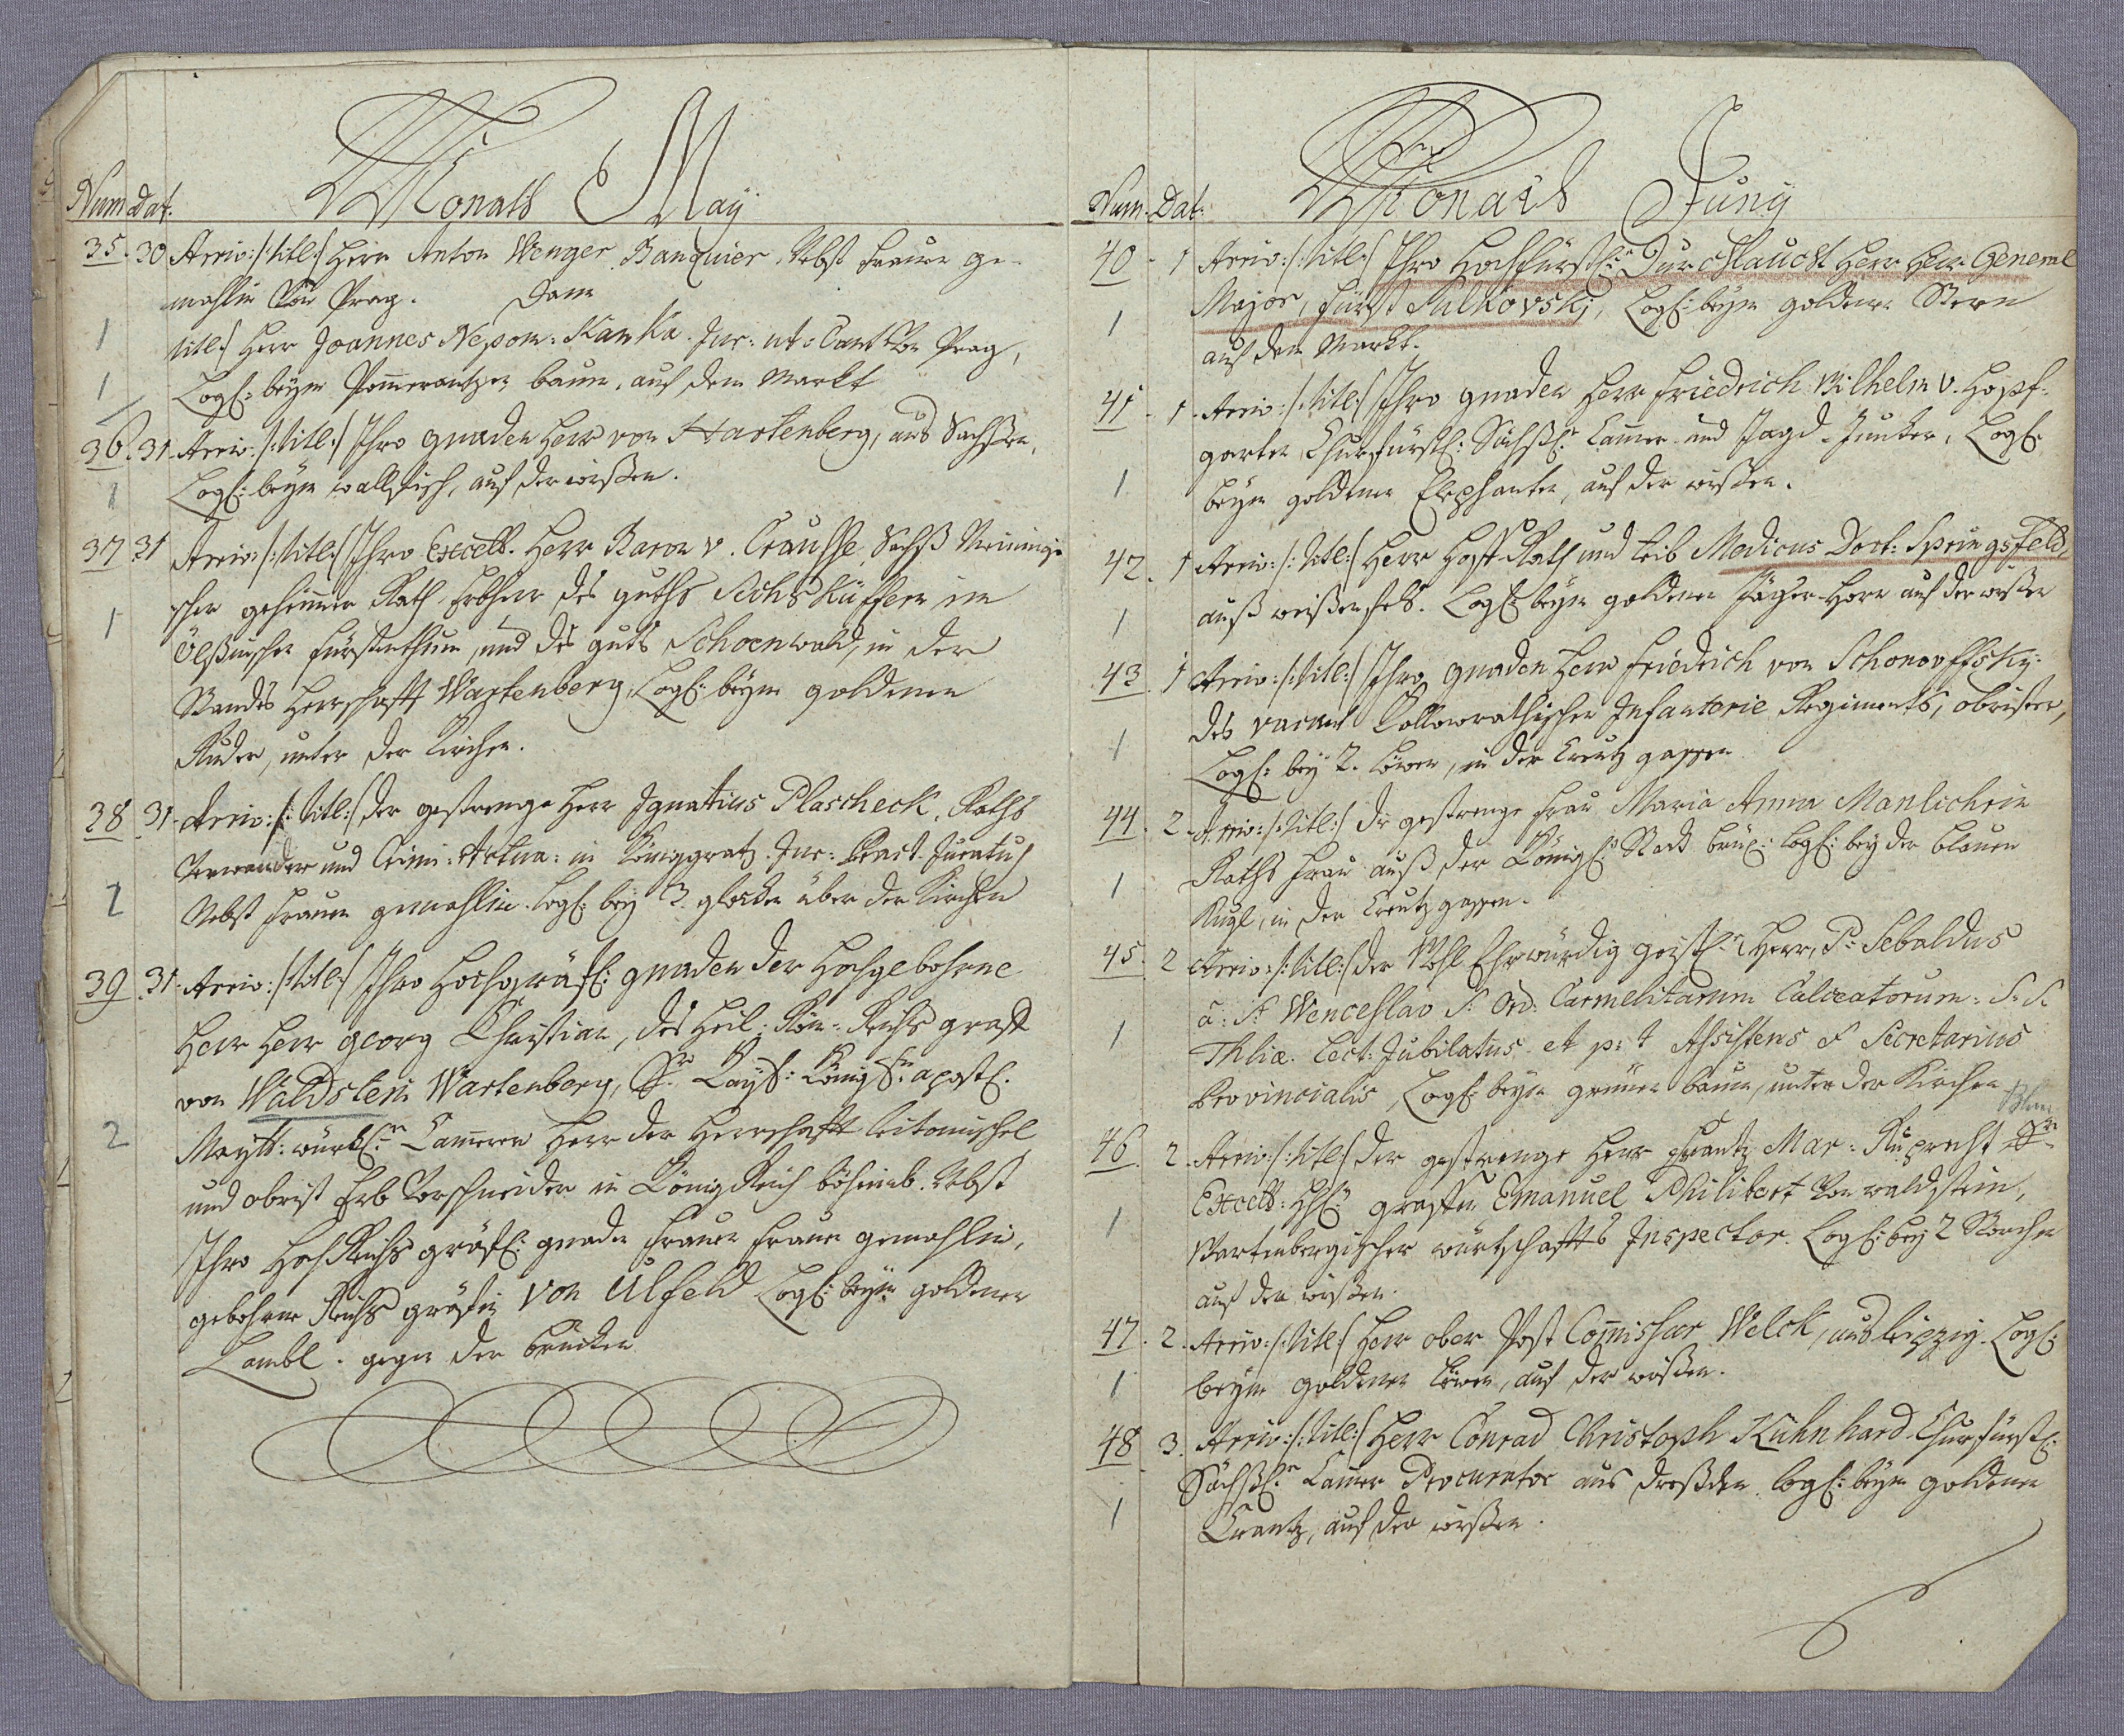 Monath May
Num Dat.
35. 30 Arriv: /: titl: / Herr Anton Wenger Banquier, Nebst Frauen ge-
mahlin Von Prag. Dann
1 titl: / Herr Joannes Nepom: Kanka. Jur: ut: Cant Von Prag,
1 Logh: beym Pommerantzen baum, auf dem Markt
36. 31. Arriv: /: titl: / Ihro Gnaden Herr von Hartenberg, aus Sachsen,
1 Logh: beym wallfisch, auf der wißen.
37 31 Arriv: /: titl: / Ihro Excell. Herr Baron v. Crausse, Sachß Meining-
scher geheimer Rath Erbherr des guths Sichs Küssern im
1 Ölßnischen Fürstenthum, und des guts Schoenwald, in der
Standes Herrschafft Wartenberg, Logh: beym goldenen
Ruder, unter der Kirchen.
38 31. Arriv: /: titl: / der gestrenge Herr Ignatius Plascheck, Raths
Verwander und Crimi: Actua: in Königgratz. Jur: Pract. Juratus
2 Nebst Frauen gemahlin. Logh: bey 3. glocken über der Kirchen
39 31. Arriv: /: titl: / Ihro Hochgräfl: gnaden der Hochgebohrne
Herr Herr Georg Christian, des Heil: Röm: Reichs graff
von Waldstein Wartenberg, Sr. Kayß: Königl:n apostl:
2 Maytt: würkl:n Cammerer Herr der Herrschafft Leitomischel
und obrist Erb Vorschneider in König Reich böheimb. Nebst
Ihro Hoch Reichs gräfl: gnaden Frauen Frauen gemahlin,
gebohrne Reichs gräfin Von Ulfeld Logh: beym goldenen
Lambl. gegen der brücken
Monath Juny
Num. Dat.
40 1 Arriv: /: titl: / Ihro Hochfürstl:e Durchlaucht Herr Herr General
1 Major, fürst Sulkovskj, Logh: beym goldenen Stern
auf dem Markt.
41 1. Arriv: /: titl: / Ihro gnaden Herr Friedrich Wilhelm v. Hopf-
garten Churfürstl: Sächßl:r Cammer und Jagd-Juncker, Logh:
1 beym goldenen Elephanten, auf der wißen.
42. 1 Arriv: /: titl: / Herr Hoff Rath und Leib Medicus Doct: Springsfeld,
1 auß weißenfels. Logh: beym goldenen Jäger-Horn auf der wißen
43. 1 Arriv: /: titl: / Ihro gnaden Herr Friedrich von Schonovffsky
1 des vacant Kollowrathischen Infanterie Regiments, obrister,
Logh: bey 2. Löwen, in der Creutz gassen
44. 2. Arriv: /: titl: / die gestrenge Frau Maria Anna Manlichrin
1 Raths Frau auß der Königl:n Stadt brüx: logh: bey der blauen
Kugl, in der Creutz gassen.
45. 2 Arriv: /: titl: / der Wohl Ehrwürdig geistl:e Herr, P: Sebaldus
à: St: Wenceslao S: Ord: Carmelitarum Calceatorum: S: S:
1 Thliæ. Lect: Jubilatus et p: t Assistens & Secretarius
Provincialis, Logh: beym grünen baum, unter der Kirchen
46. 2. Arriv: /: titl: / der gestrenge Herr Frantz Mar: Ruprecht Sr:
1 Excell: HH:n graffen Emanuel Philibert Von Waldstein,
Wartenbergischer würtschaffts Inspector. Logh: bey 2 Storchen
auf der wißen.
47. 2. Arriv: /: titl: / Herr ober Post Commissar Welck, aus Leipzig. Logh:
1 beym goldenen Löwen, auf der wißen.
48 3. Arriv: /: titl: / Herr Conrad Christoph Kühnhard Churfürstl:
Sächßl:r Cammer Procurator aus Dreßden. logh: beym goldenen
1 Crantz, auf der wißen.